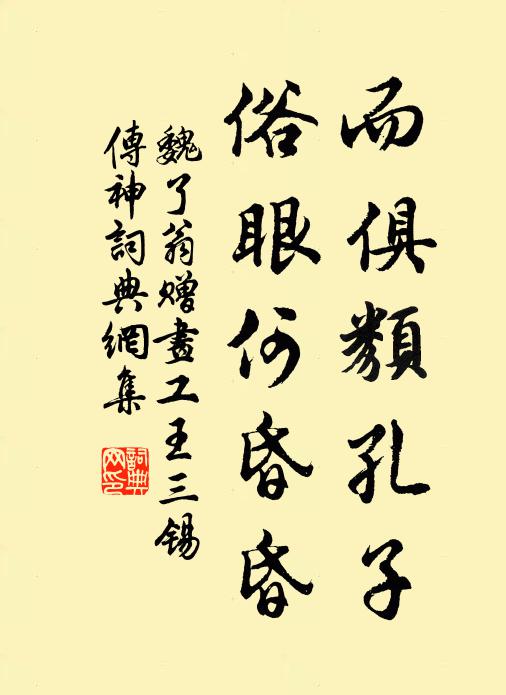 而俱類孔子
俗眼何昏昏
魏了翁赠畫工王三锡
傳神詞典網集
詞典
网印